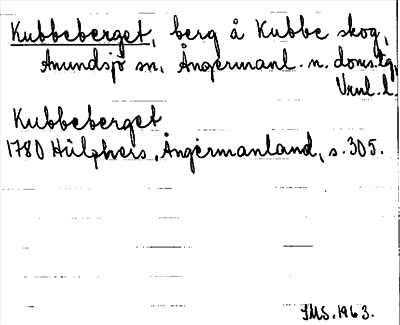 Kubbeberget, berg å Kubbe skog,
Anundsjö sn, Ångermanl. n. doms.tg,
Vnl. l.
Kubbeberget
1780 Hülphers, Ångermanland, s. 305.
IMS. 1963.